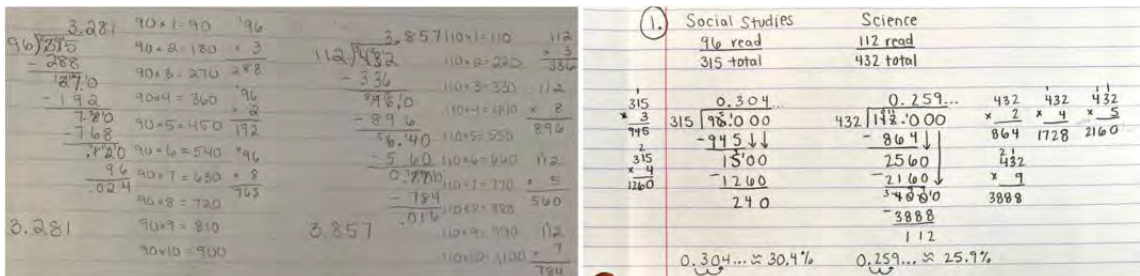 3.281
96)315
- 288
27.0
- 192
7.80
- 768
.120
96
.024
3.281
90×1=90
90×2=180
90×3=270
90×4=360
90×5=450
90×6=540
90×7=630
90×8=720
90×9=810
90×10=900
96
× 3
288
96
× 2
192
96
× 8
768
3.857
112)432
- 336
96.0
- 896
6.40
- 5 60
- 784
.016
3.857
110×1=110
110×2=220
110×3=330
110×4=440
110×5=550
110×6=660
110×7=770
110×8=880
110×9=990
110×10=1,100
112
× 3
336
112
× 8
896
112
× 5
560
112
× 7
784
1. Social Studies Science
96 read 112 read
315 total 432 total
315
× 3
945
315
× 4
1260
0.304...
315 96.000
- 945
1500
- 1260
240
0.304... ≈ 30.4%
0.259...
432 112.000
- 864
2560
- 2160
4000
- 3888
112
0.259... ≈ 25.9%
432
× 2
864
432
× 4
1728
432
× 5
2160
432
× 9
3888